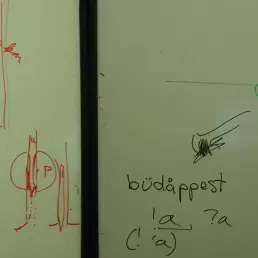 P
büdåppest
!a, ?a
(! 'a)